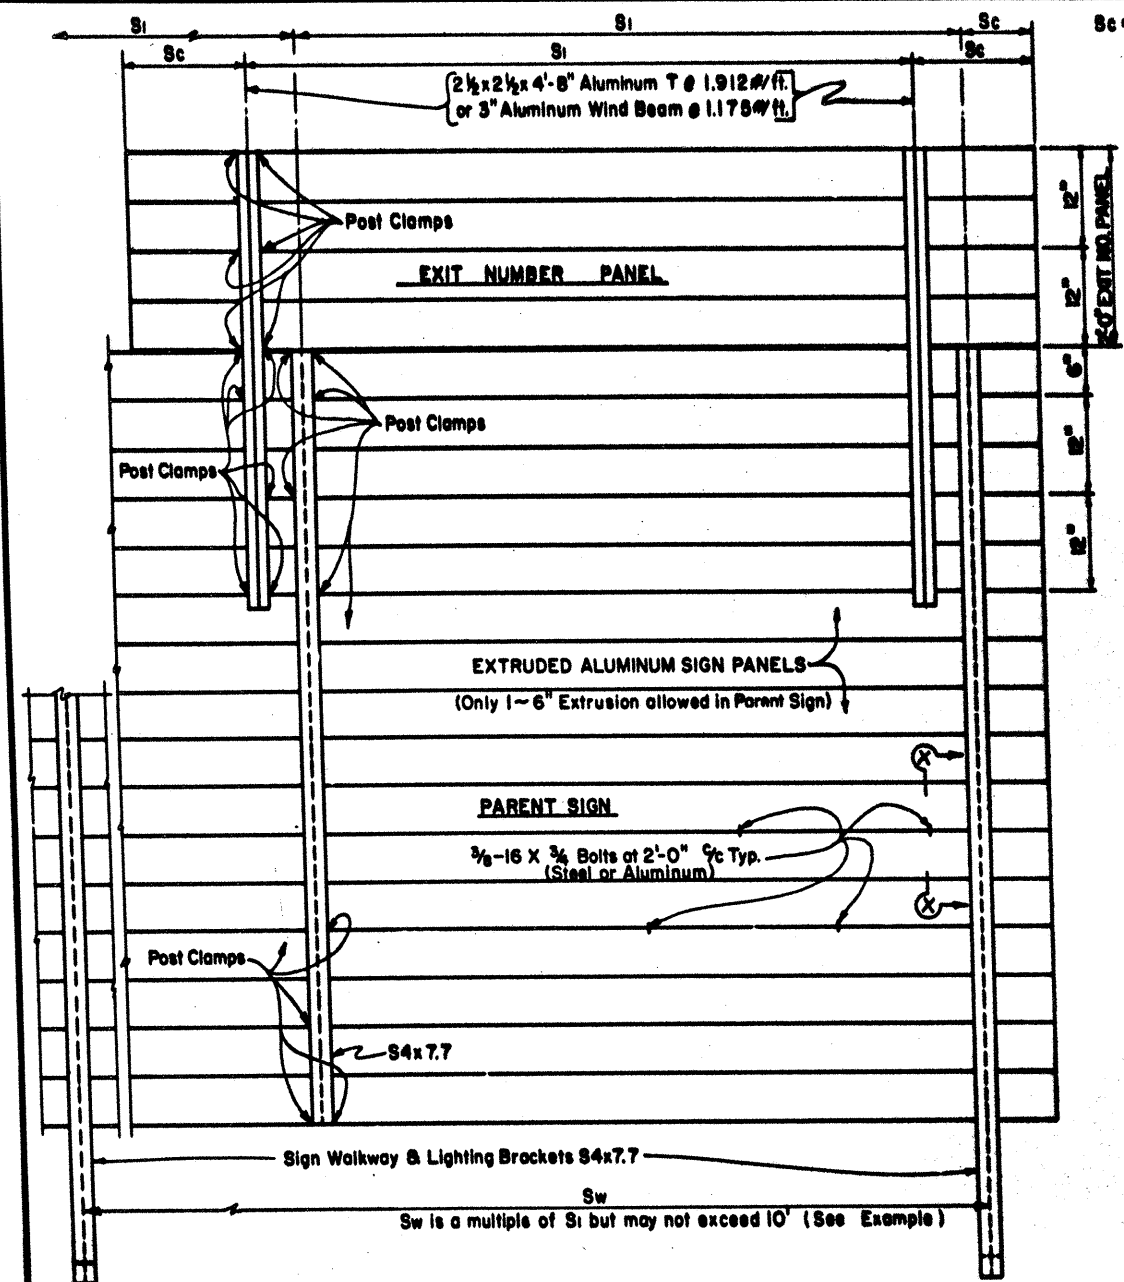 S1
S1
Sc
Sc
Sc
S1
Sc
2½x2½x 4'-8" Aluminum T @ 1.912#/ft.
or 3" Aluminum Wind Beam @ 1.175#/ft.
Post Clamps
EXIT NUMBER PANEL
12"
12"
2'-0" EXIT NO. PANEL
6"
12"
12"
Post Clamps
Post Clamps
EXTRUDED ALUMINUM SIGN PANELS
(Only 1~6" Extrusion allowed in Parent Sign)
X
PARENT SIGN
3/8-16 X 3/4 Bolts at 2'-0" c/c Typ.
(Steel or Aluminum)
X
Post Clamps
S4x7.7
Sign Walkway & Lighting Brackets S4x7.7
Sw
Sw is a multiple of S1 but may not exceed 10' (See Example)